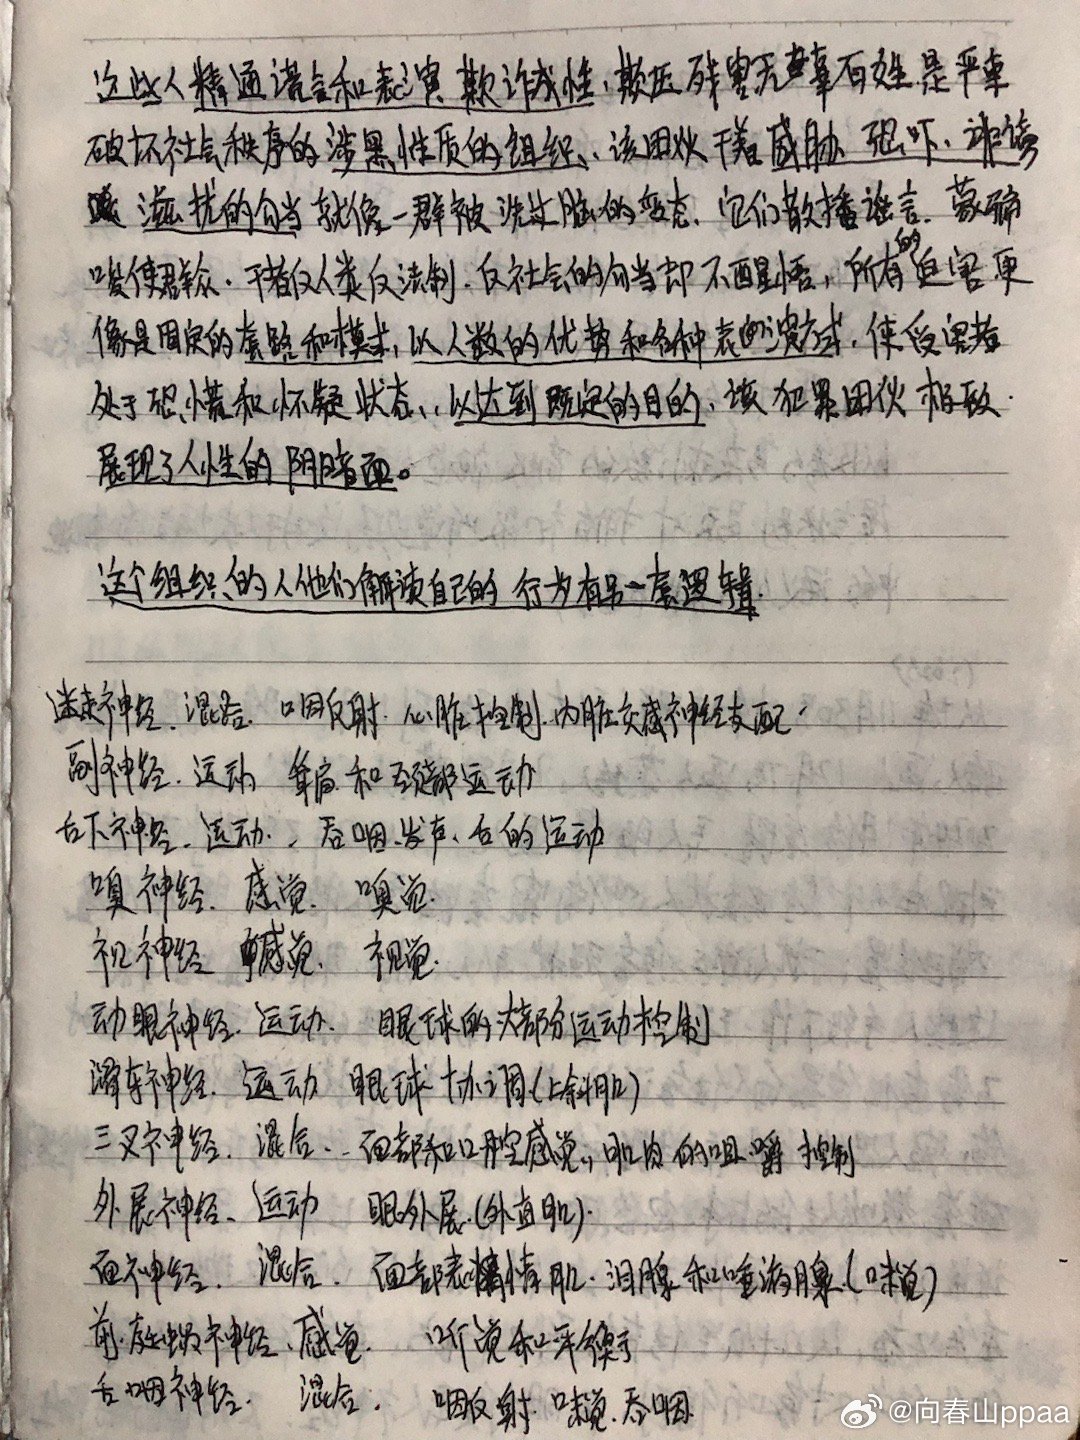 这些人精通谎言和表演欺诈成性、欺压残害无辜百姓是严重
破坏社会秩序的涉黑性质的组织、该团伙干着威胁、恐吓、诽谤
滋扰的勾当就像一群被洗过脑的变态、它们散播谣言、蒙骗
唆使群众、干着反人类反法制、反社会的勾当却不醒悟，所有的迫害更
像是固定的套路和模式，以人数的优势和各种表演方式，使受害者
处于恐慌和怀疑状态、以达到既定的目的，该犯罪团伙极致
展现了人性的阴暗面。
这个组织的人他们解读自己的行为有另一套逻辑.
迷走神经、混合、咽反射、心脏控制、内脏交感神经支配.
副神经、运动 耸肩和颈部运动
舌下神经、运动、吞咽、发声、舌的运动
嗅神经、感觉、嗅觉.
视神经 感觉、视觉.
动眼神经、运动、眼球的大部分运动控制
滑车神经、运动 眼球协调(上斜肌)
三叉神经、混合、面部和口腔感觉，肌肉的咀嚼控制
外展神经、运动 眼外展(外直肌).
面神经、混合、面部表情肌、泪腺和唾液腺(味觉)
前庭蜗神经、感觉、听觉和平衡
舌咽神经、混合、咽反射、味觉、吞咽
@向春山ppaa